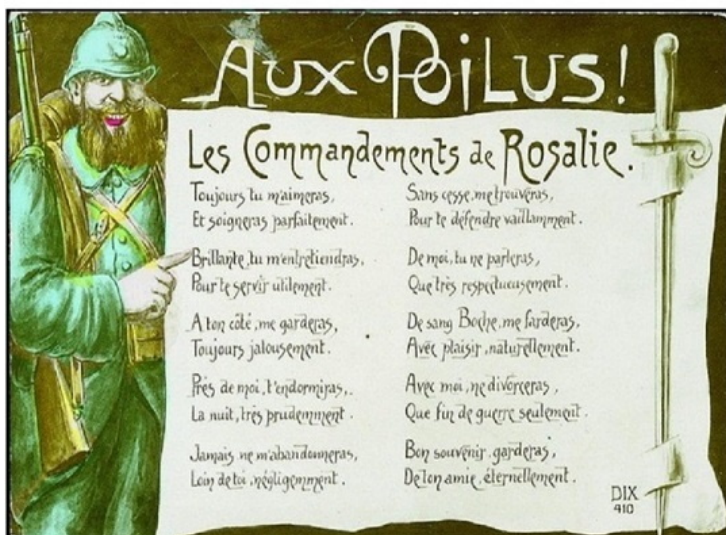 AUX POILUS!
Les Commandements de Rosalie.
Toujours tu m'aimeras,
Et soigneras parfaitement.
Brillante, tu m'entretiendras,
Pour te servir utilement.
A ton côté, me garderas,
Toujours jalousement.
Près de moi, t'endormiras,
La nuit, très prudemment.
Jamais ne m'abandonneras,
Loin de toi, négligemment.
Sans cesse, me trouveras,
Pour te défendre vaillamment.
De moi, tu ne parleras,
Que très respectueusement.
De sang Boche, me farderas,
Avec plaisir, naturellement.
Avec moi, ne divorceras,
Que fin de guerre seulement.
Bon souvenir, garderas,
De ton amie, éternellement.
DIX
410